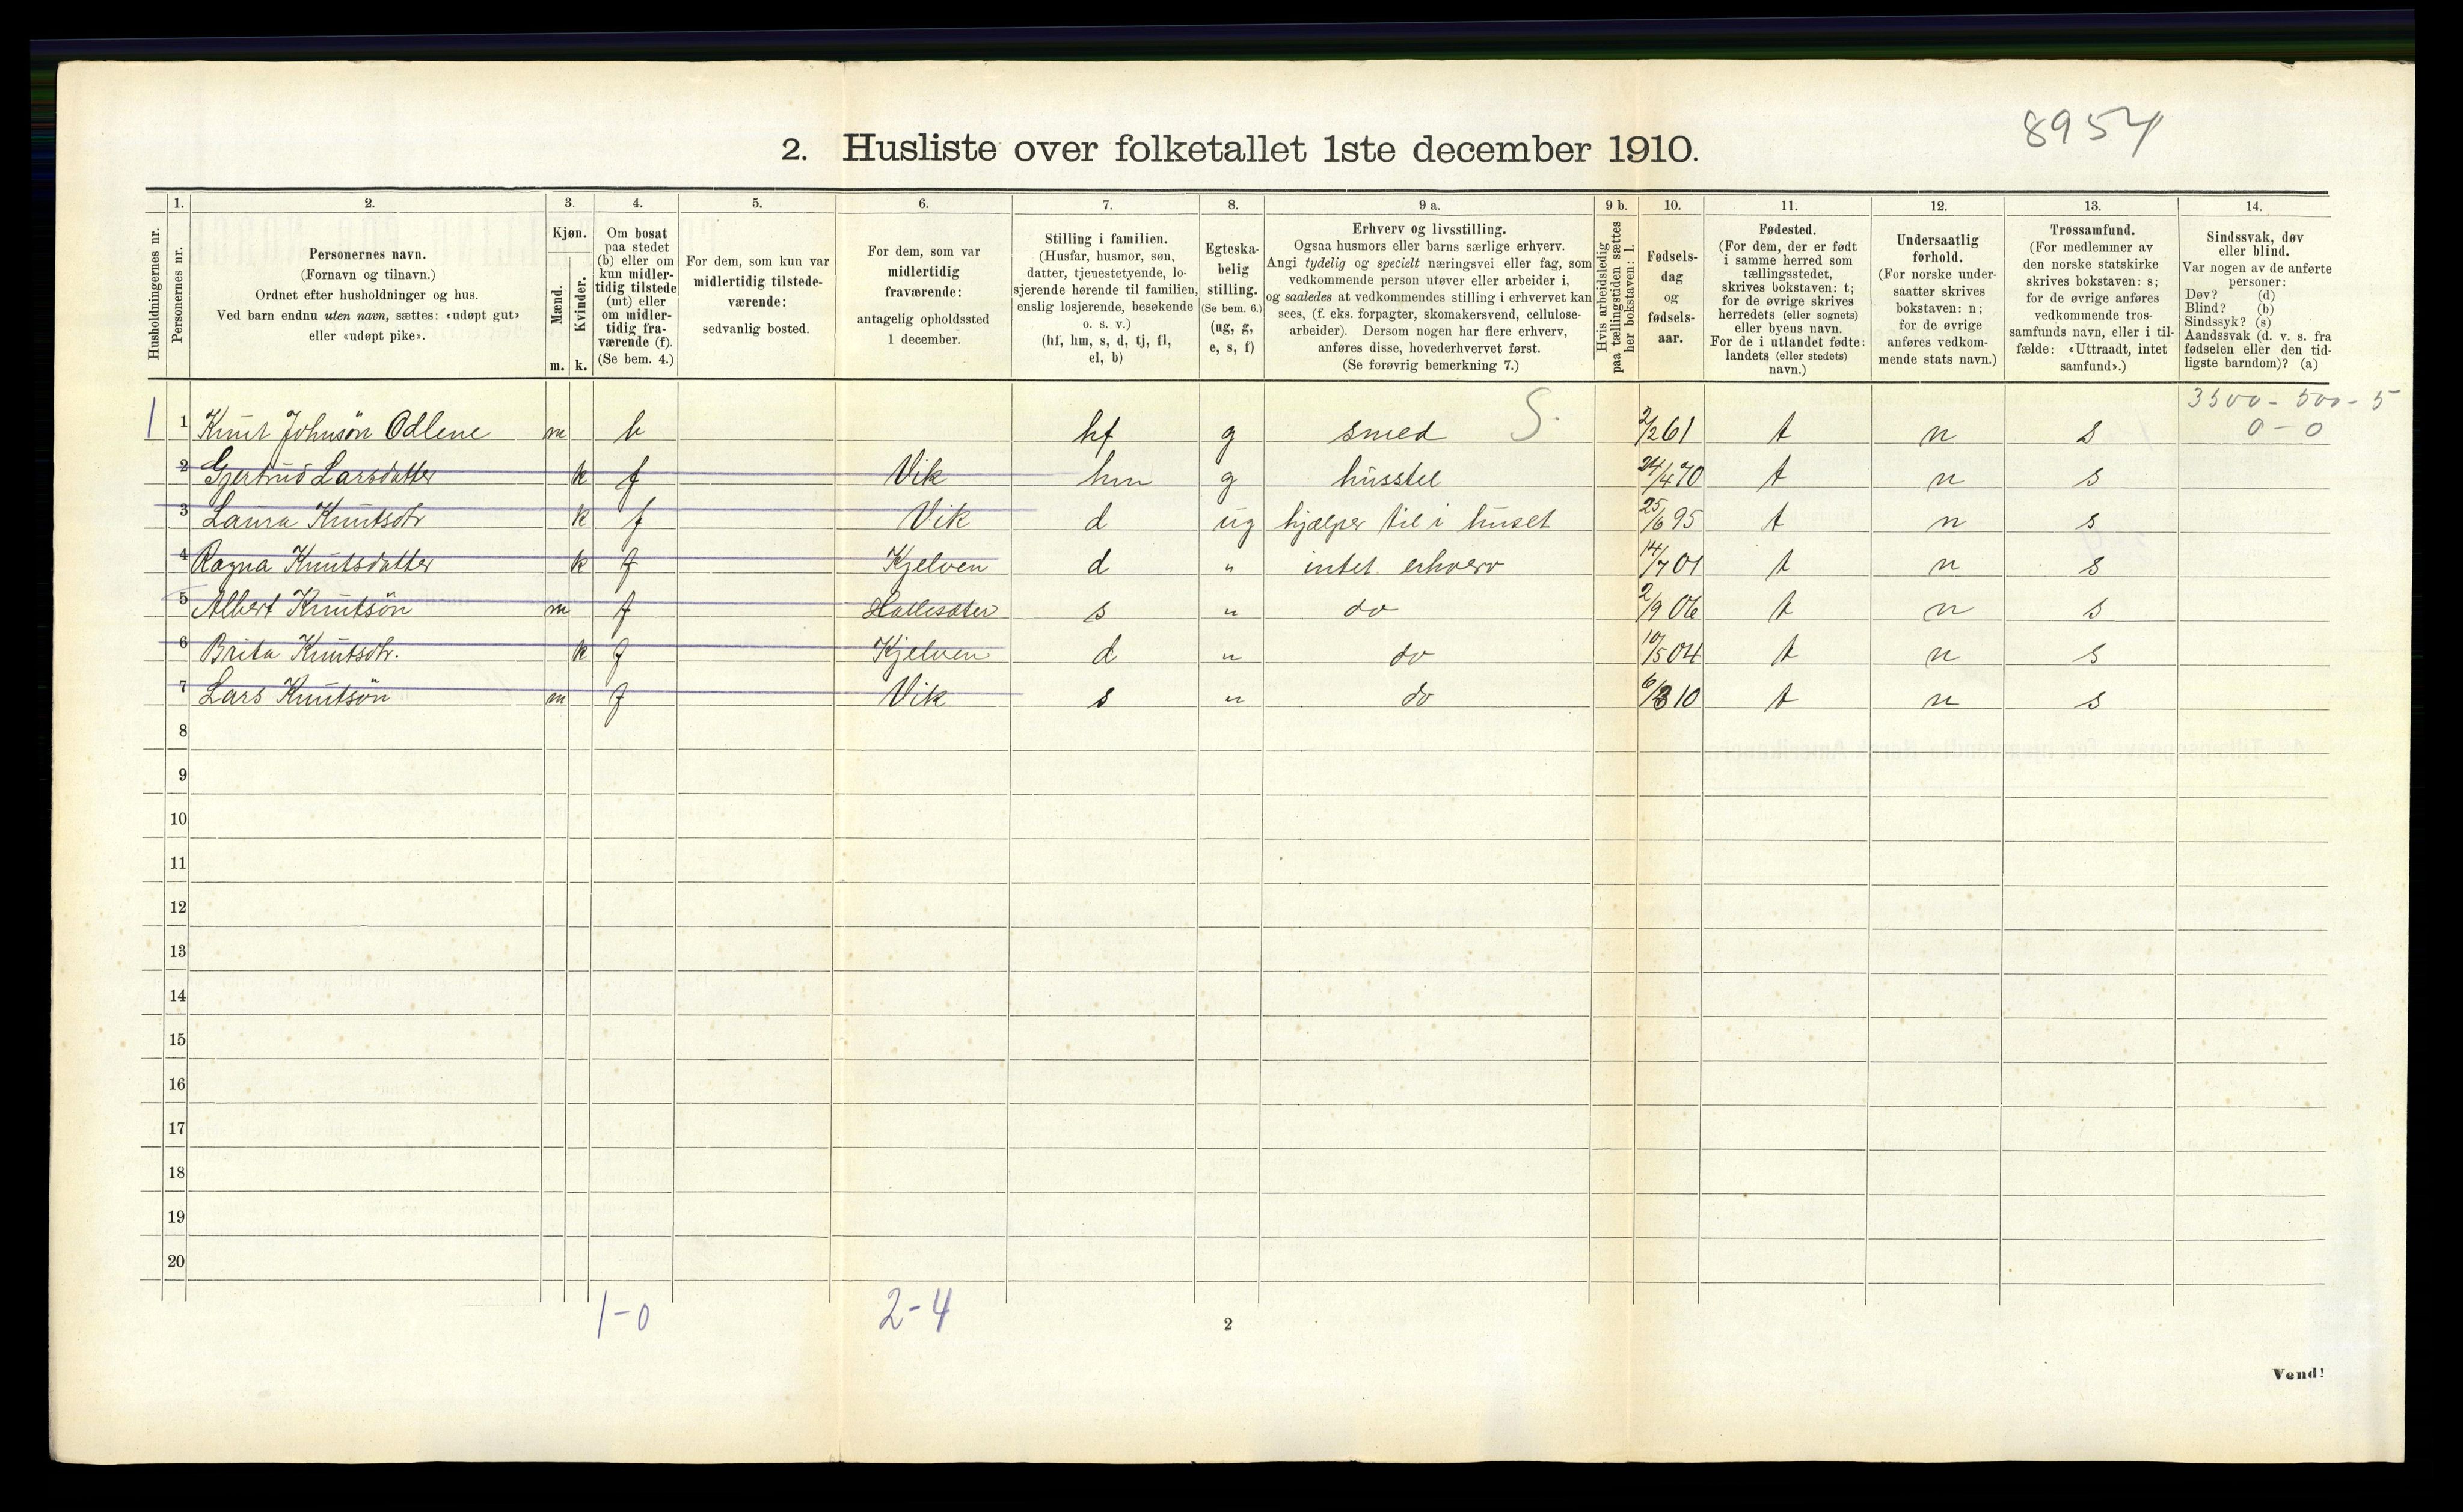 8954
2. Husliste over folketallet 1ste december 1910.
Husholdningernes nr.
1. Personernes nr.
2. Personernes navn. (Fornavn og tilnavn.) Ordnet efter husholdninger og hus. Ved barn endnu uten navn, sættes: «udøpt gut» eller «udøpt pike».
3. Kjøn. Mænd. m. Kvinder. k.
4. Om bosat paa stedet (b) eller om kun midlertidig tilstede (mt) eller om midlertidig fraværende (f). (Se bem. 4.)
5. For dem, som kun var midlertidig tilstedeværende: sedvanlig bosted.
6. For dem, som var midlertidig fraværende: antagelig opholdssted 1 december.
7. Stilling i familien. (Husfar, husmor, søn, datter, tjenestetyende, losjerende hørende til familien, enslig losjerende, besøkende o. s. v.) (hf, hm, s, d, tj, fl, el, b)
8. Egteskabelig stilling. (Se bem. 6.) (ug, g, e, s, f)
9 a. Erhverv og livsstilling. Ogsaa husmors eller barns særlige erhverv. Angi tydelig og specielt næringsvei eller fag, som vedkommende person utøver eller arbeider i, og saaledes at vedkommendes stilling i erhvervet kan sees, (f. eks. forpagter, skomakersvend, cellulosearbeider). Dersom nogen har flere erhverv, anføres disse, hovederhvervet først. (Se forøvrig bemerkning 7.)
9 b. Hvis arbeidsledig paa tællingstiden sættes her bokstaven: l.
10. Fødselsdag og fødselsaar.
11. Fødested. (For dem, der er født i samme herred som tællingsstedet, skrives bokstaven: t; for de øvrige skrives herredets (eller sognets) eller byens navn. For de i utlandet fødte: landets (eller stedets) navn.)
12. Undersaatlig forhold. (For norske undersaatter skrives bokstaven: n; for de øvrige anføres vedkommende stats navn.)
13. Trossamfund. (For medlemmer av den norske statskirke skrives bokstaven: s; for de øvrige anføres vedkommende trossamfunds navn, eller i tilfælde: «Uttraadt, intet samfund».)
14. Sindssvak, døv eller blind. Var nogen av de anførte personer: Døv? (d) Blind? (b) Sindssyk? (s) Aandssvak (d. v. s. fra fødselen eller den tidligste barndom)? (a)
3500 - 500 - 5
0 - 0
1 1 Knut Johnsön Odlene m b hf g smed S. 2/2 61 t n s
2 Gjertrud Larsdatter k f Vik hm g husstel 24/4 70 t n s
3 Laura Knutsdtr k f Vik d ug hjælper til i huset 25/6 95 t n s
4 Ragna Knutsdatter k f Kjelven d " intet erhverv 14/7 01 t n s
5 Albert Knutsön m f s " do 2/9 06 t n s
6 Brita Knutsdtr. k f Kjelven d " do 10/5 04 t n s
7 Lars Knutsön m f Vik s " do 6/3 10 t n s
8
9
10
11
12
13
14
15
16
17
18
19
20
1-0 2-4
2
Vend!